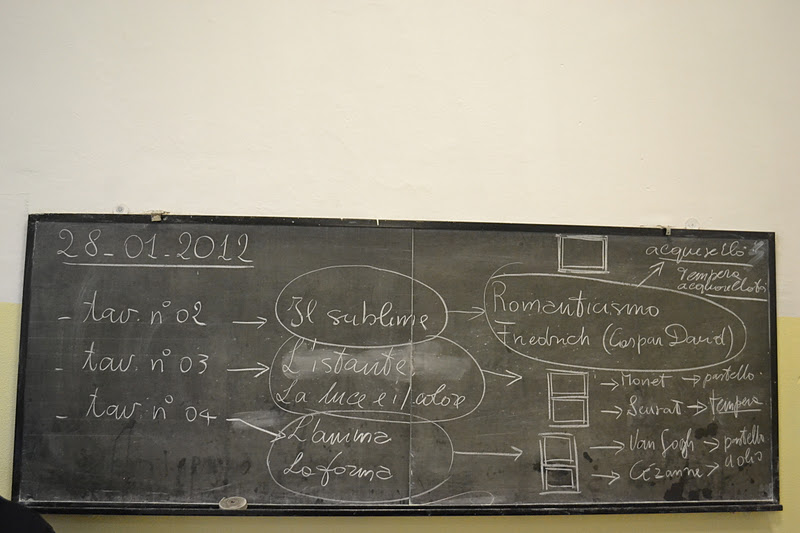 28-01-2012
- tav. n° 02
Il sublime
Romanticismo
Friedrich (Caspar David)
acquerello
Tempera
acquerellata
- tav. n° 03
L'istante
La luce e il colore
Monet → pastello
Seurat → tempera
- tav. n° 04
L'anima
La forma
Van Gogh → pastello
Cézanne → a olio